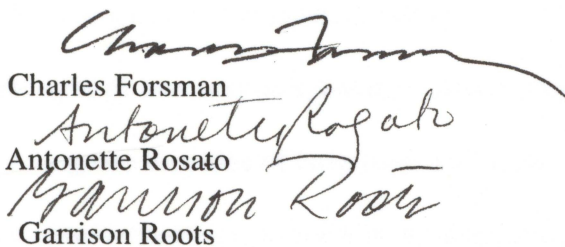 Charles Forsman
Charles Forsman
Antonette Rosato
Antonette Rosato
Garrison Roots
Garrison Roots